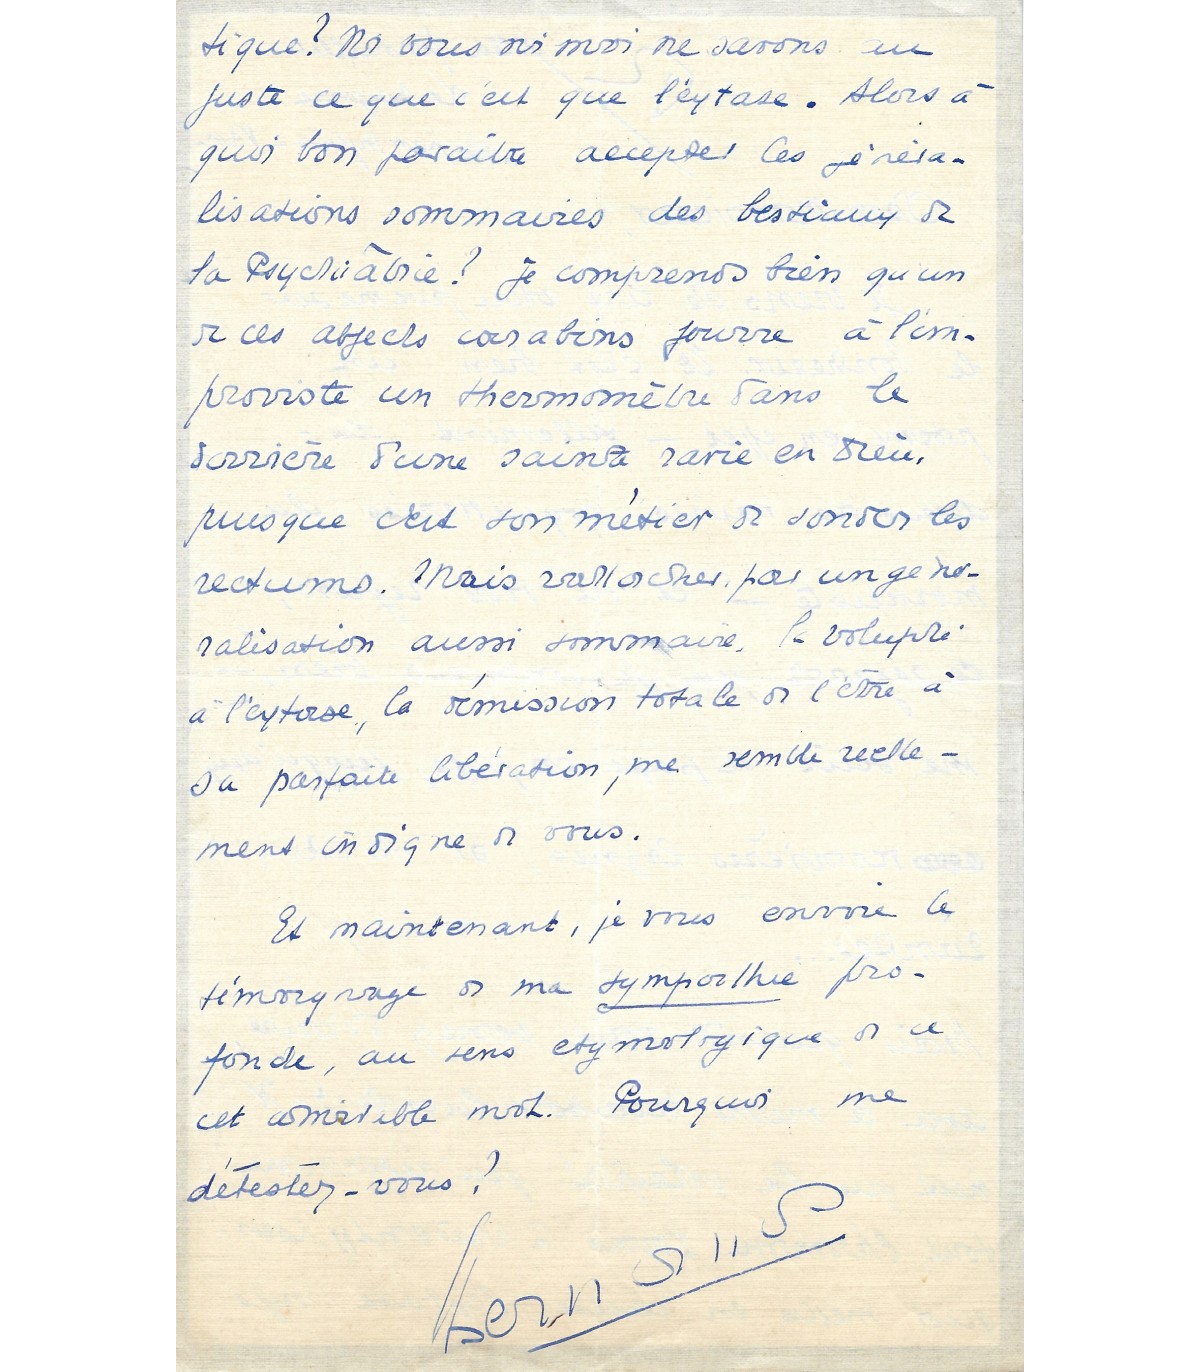 tique? Ni vous ni moi ne savons au
juste ce que c'est que l'extase. Alors à
quoi bon paraître accepter les généra-
lisations sommaires des bestiaux de
la Psychiâtrie? Je comprends bien qu'un
de ces abjects carabins fourre à l'im-
proviste un thermomètre dans le
derrière d'une sainte ravie en Dieu,
puisque c'est son métier de sonder les
rectums. Mais rattacher, par un géné-
ralisation aussi sommaire, la volupté
à l'extase, la démission totale de l'être à
sa parfaite libération, me semble réelle-
ment indigne de vous.
Et maintenant, je vous envoie le
témoignage de ma sympathie pro-
fonde, au sens etymologique de ce
cet admirable mot. Pourquoi me
détestez-vous?
Bernanos